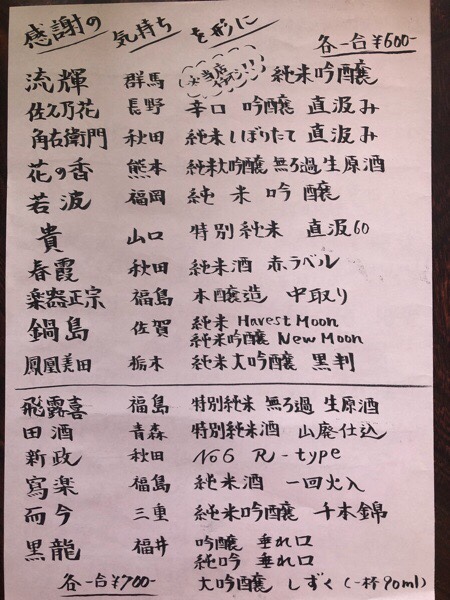 感謝の 気持ち を形に
各一合¥600-
流輝 群馬 純米吟醸
佐久乃花 長野 辛口 吟醸 直汲み
角右衛門 秋田 純米しぼりたて 直汲み
花の香 熊本 純米大吟醸 無ろ過生原酒
若波 福岡 純米吟醸
貴 山口 特別純米 直汲60
春霞 秋田 純米酒 赤ラベル
楽器正宗 福島 本醸造 中取り
鍋島 佐賀 純米 Harvest Moon
純米吟醸 New Moon
鳳凰美田 栃木 純米大吟醸 黒判
飛露喜 福島 特別純米 無ろ過 生原酒
田酒 青森 特別純米酒 山廃仕込
新政 秋田 No6 R-type
寫楽 福島 純米酒 一回火入
而今 三重 純米吟醸 千本錦
黒龍 福井 吟醸 垂れ口
純吟 垂れ口
各一合¥700- 大吟醸 しずく (一杯90ml)